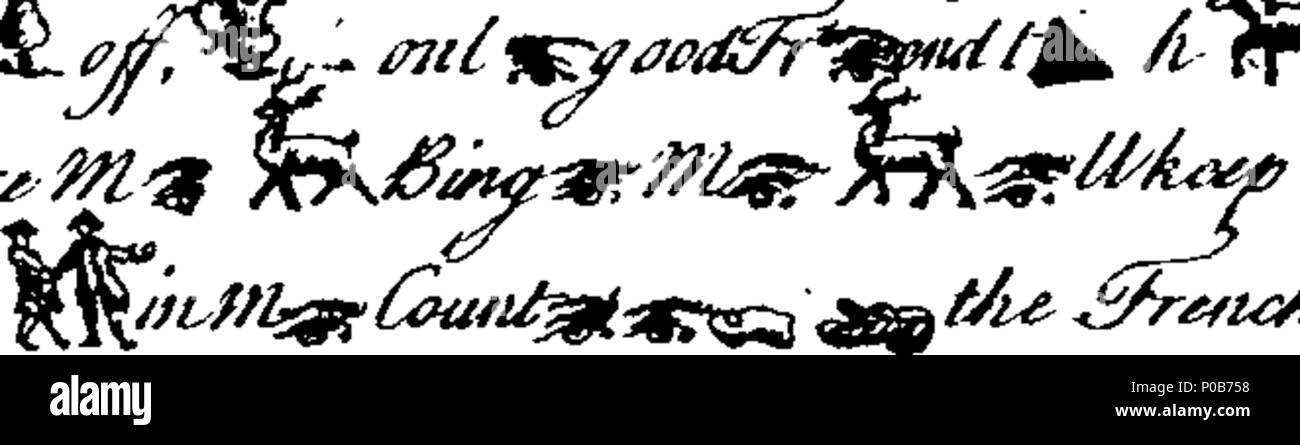 off, oul good Fr ond t h
M Bing M Ukoep
in M Count the French
alamy
Image ID: P0B758
www.alamy.com